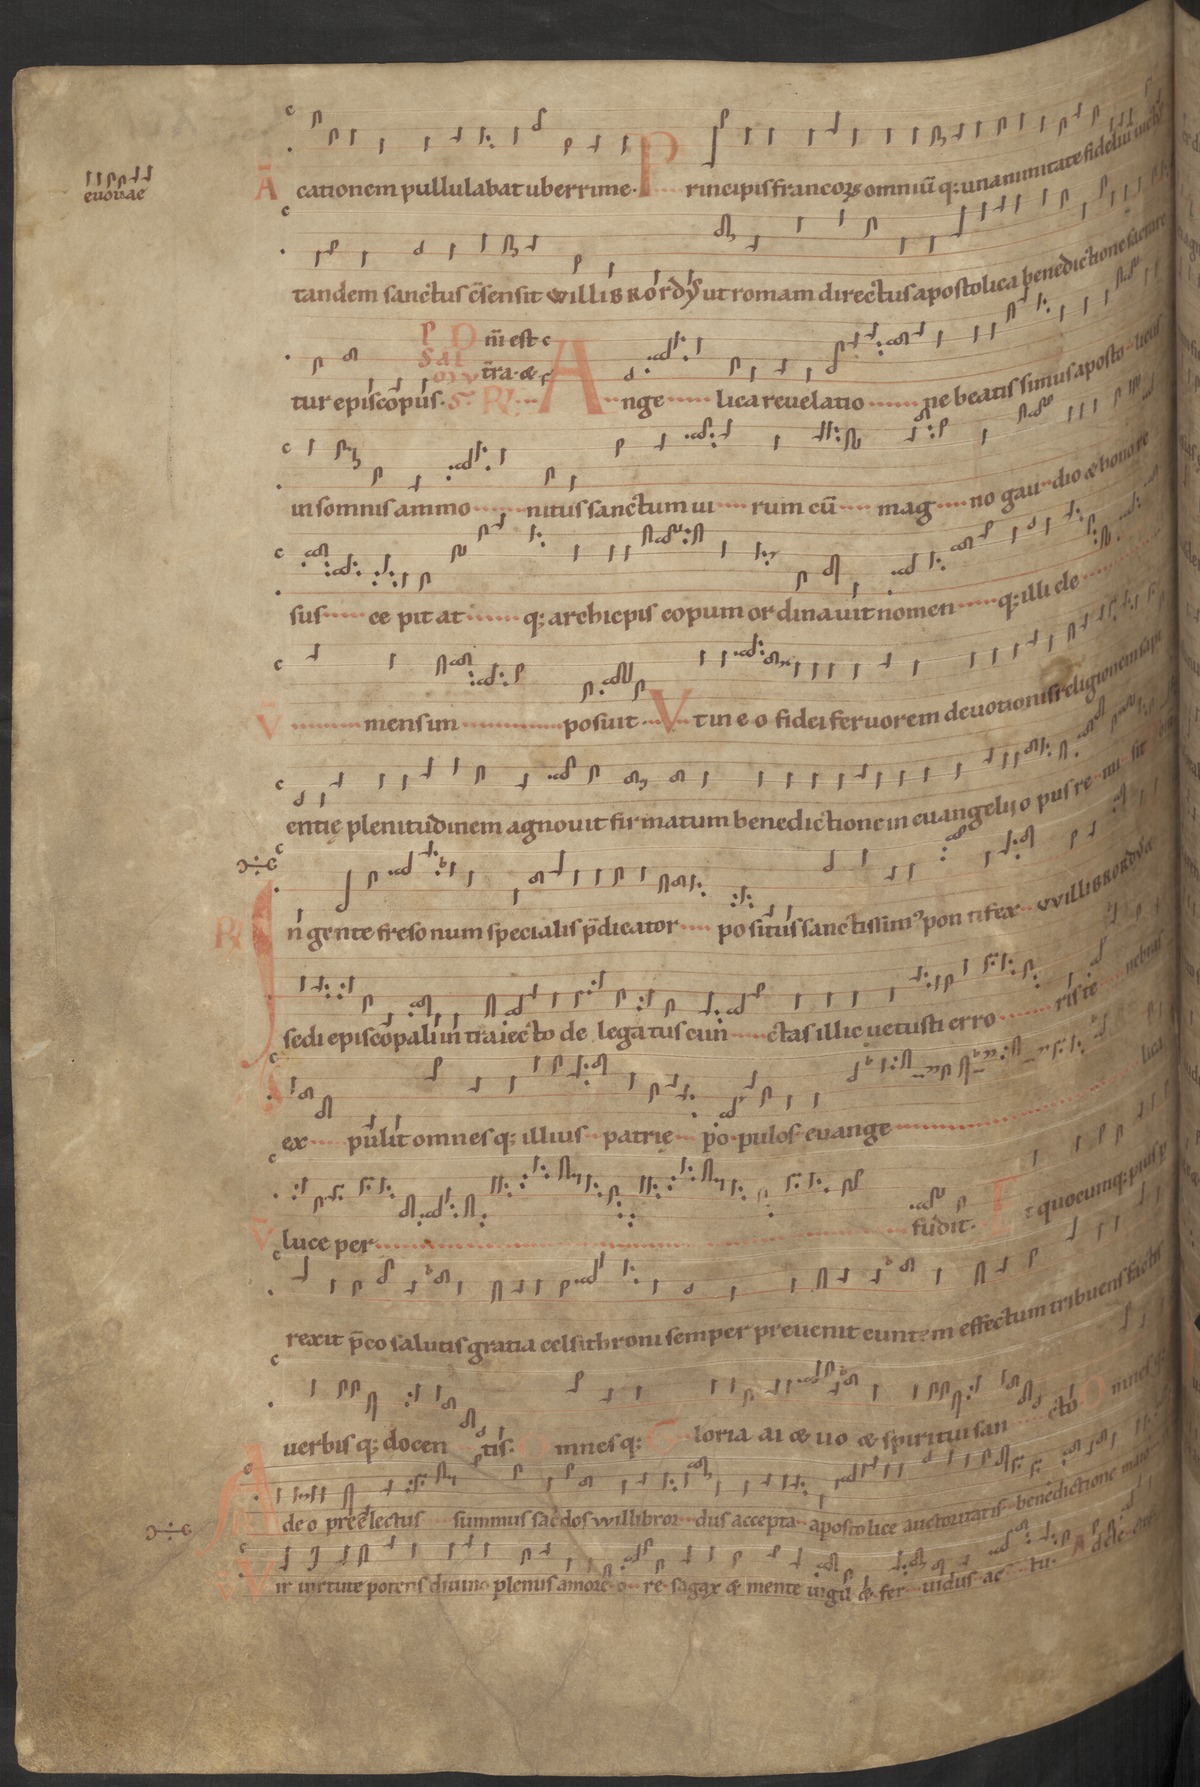 euouae
A cationem pullulabat uberrime. Principis francoꝝ omniū q; unanimitate fideliū
tandem sanctus c̄sensit WILLIBRORDꝰ ut romam directus apostolica benedictione sacrare
tur episcopus. P D n̄i est
S al t̄ra. &
℟ Ange lica reuelatio ne beatissimus aposto licus
in somnis ammo nitus sanctum ui rum cū mag no gau dio & honore
sus ce pit at q; archiepis copum ordinauit nomen q; illi cle
V̄ mens im posuit Vt in eo fidei feruorem deuotionis religionem sapi
entię plenitudinem agnouit firmatum benedictione in euangelij opus re mi sit
℟ In gente fresonum specialis p̄dicator positus sanctissimꝰ pontifex WILLIBRORDꝰ a
sedi episcopali in traiecto delegatus cun ctas illic uetusti erro ris te nebras
ex pulit omnes q; illius patrię po pulos euange lica
V̄ luce per fudit. Et quocumq; pius p
rexit p̄co salutis gratia celsithroni semper preuenit euntem effectum tribuens factis
uerbis q; docen tis. Omnes q; Gloria
& uo & spiritui san cto Omnes q;
A deo preelectus summus sac̄dos willibror dus accepta apostolice auctoritatis benedictione
V̄ Vir uirtute potens diuino plenus amore o re sagax & mente uigil & fer uidus ac tu. A